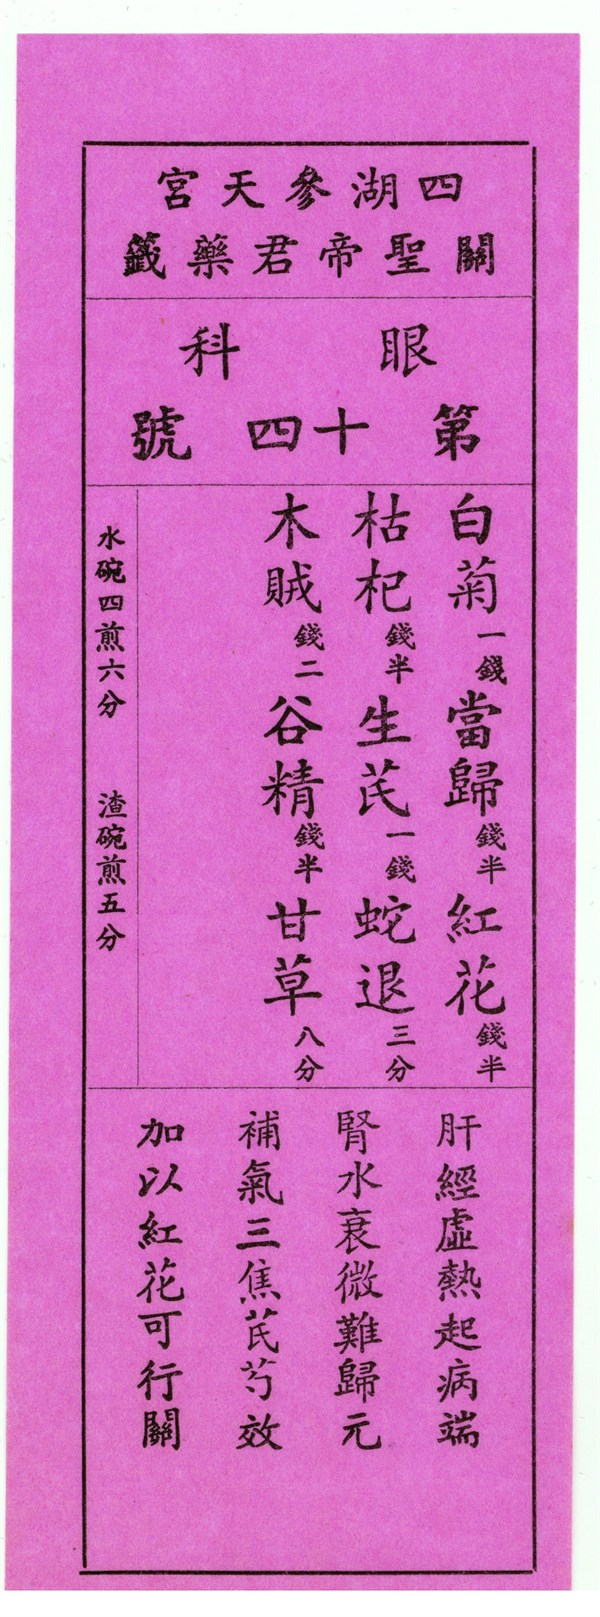 四湖參天宮
關聖帝君藥籤
眼科
第十四號
白菊一錢 當歸錢半 紅花錢半
枯杞錢半 生芪一錢 蛇退三分
木賊錢二 谷精錢半 甘草八分
水碗四煎六分 渣碗煎五分
肝經虛熱起病端
腎水衰微難歸元
補氣三焦芪芍效
加以紅花可行關